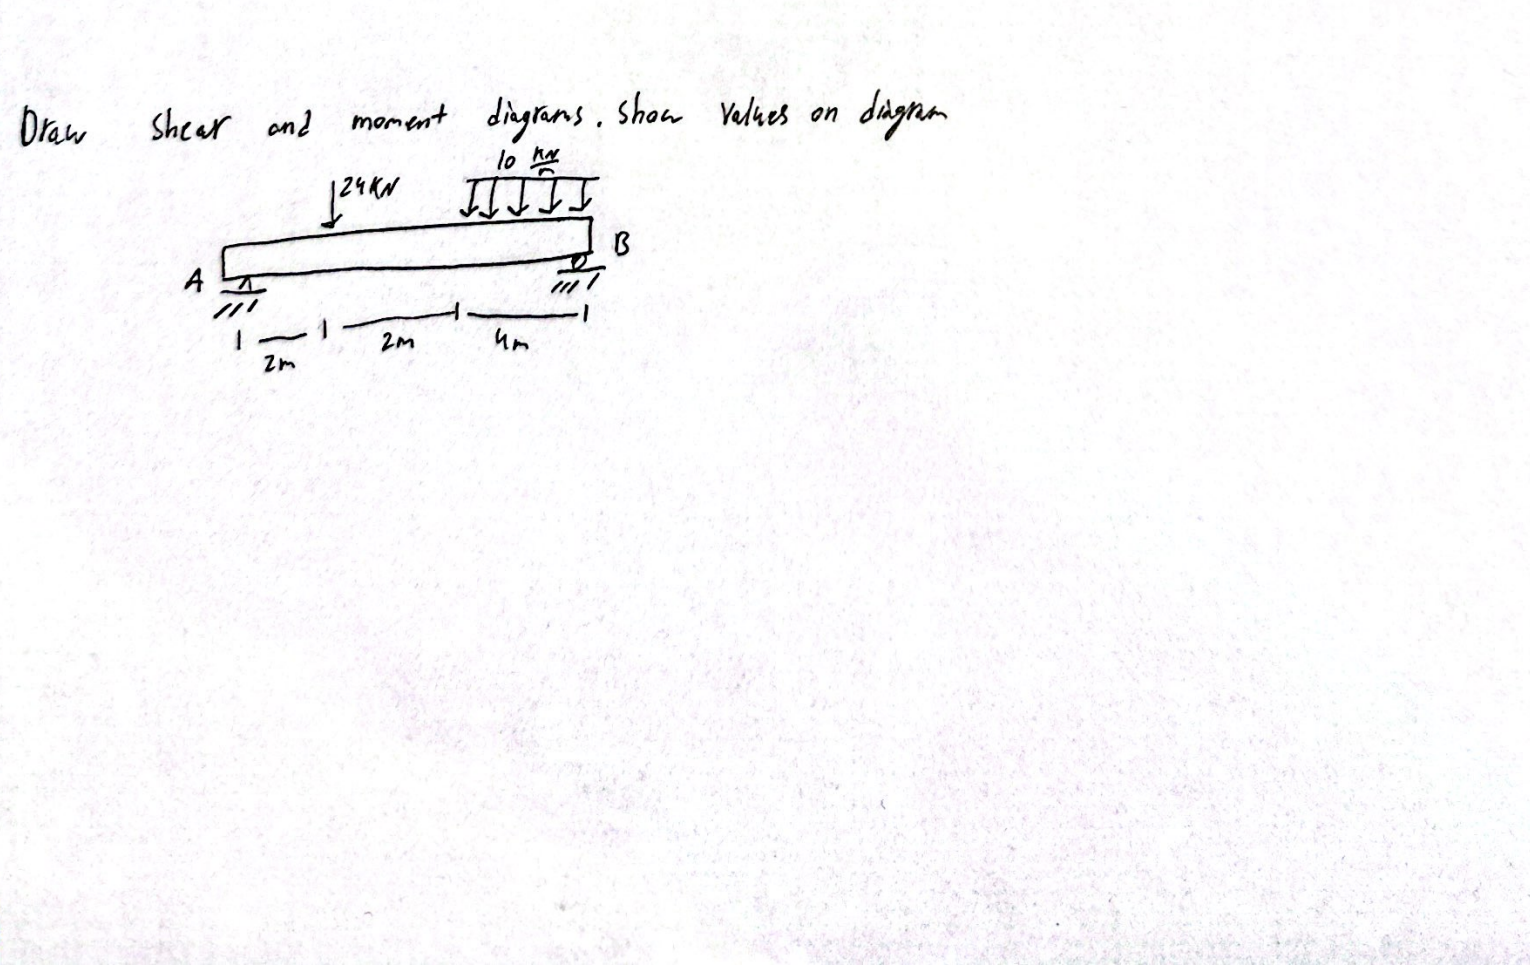 Draw shear and moment diagrams. Show values on diagram
10 KN/m
24KN
A
B
2m 2m 4m